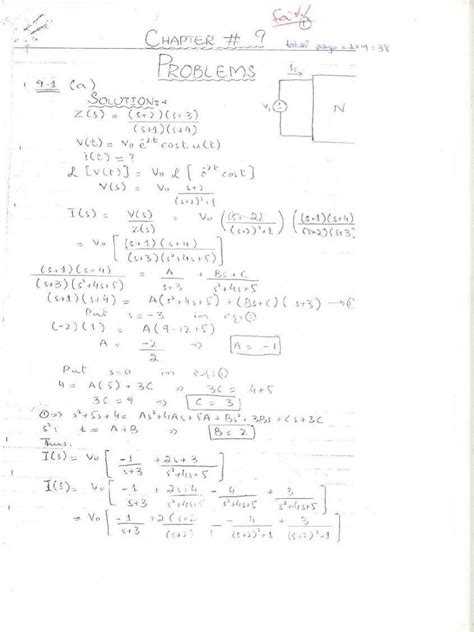 CHAPTER # 9
total page = 1→9 = 38
PROBLEMS
9-1 (a)
SOLUTION:-
Z(s) = (s+2)(s+3) / (s+1)(s+4)
V(t) = V₀ e^-2t cost.u(t)
i(t) = ?
N
ℒ[V(t)] = V₀ ℒ[e^-2t cost]
V(s) = V₀ (s+2) / ((s+2)²+1)
I(s) = V(s)/Z(s) = V₀ ((s+2)/((s+2)²+1)) ((s+1)(s+4)/((s+2)(s+3)))
= V₀ [(s+1)(s+4) / ((s+3)(s²+4s+5))]
(s+1)(s+4) / ((s+3)(s²+4s+5)) = A/(s+3) + (Bs+C)/(s²+4s+5)
(s+1)(s+4) = A(s²+4s+5) + (Bs+C)(s+3) → ①
Put s=-3 in eq:①
(-2)(1) = A(9-12+5)
A = -2/2 ⇒ A = -1
Put s=0 in eq:①
4 = A(5) + 3C ⇒ 3C = 4+5
3C = 9 ⇒ C = 3
①⇒ s²+5s+4 = As²+4As+5A+Bs²+3Bs+Cs+3C
s²: 1 = A+B ⇒ B = 2
Thus:
I(s) = V₀ [-1/(s+3) + (2s+3)/(s²+4s+5)]
I(s) = V₀ [-1/(s+3) + (2s+4)/(s²+4s+5) - 4/(s²+4s+5) + 3/(s²+4s+5)]
= V₀ [-1/(s+3) + 2(s+2)/(s+2) - 4/((s+2)²+1) + 3/((s+2)²+1)]